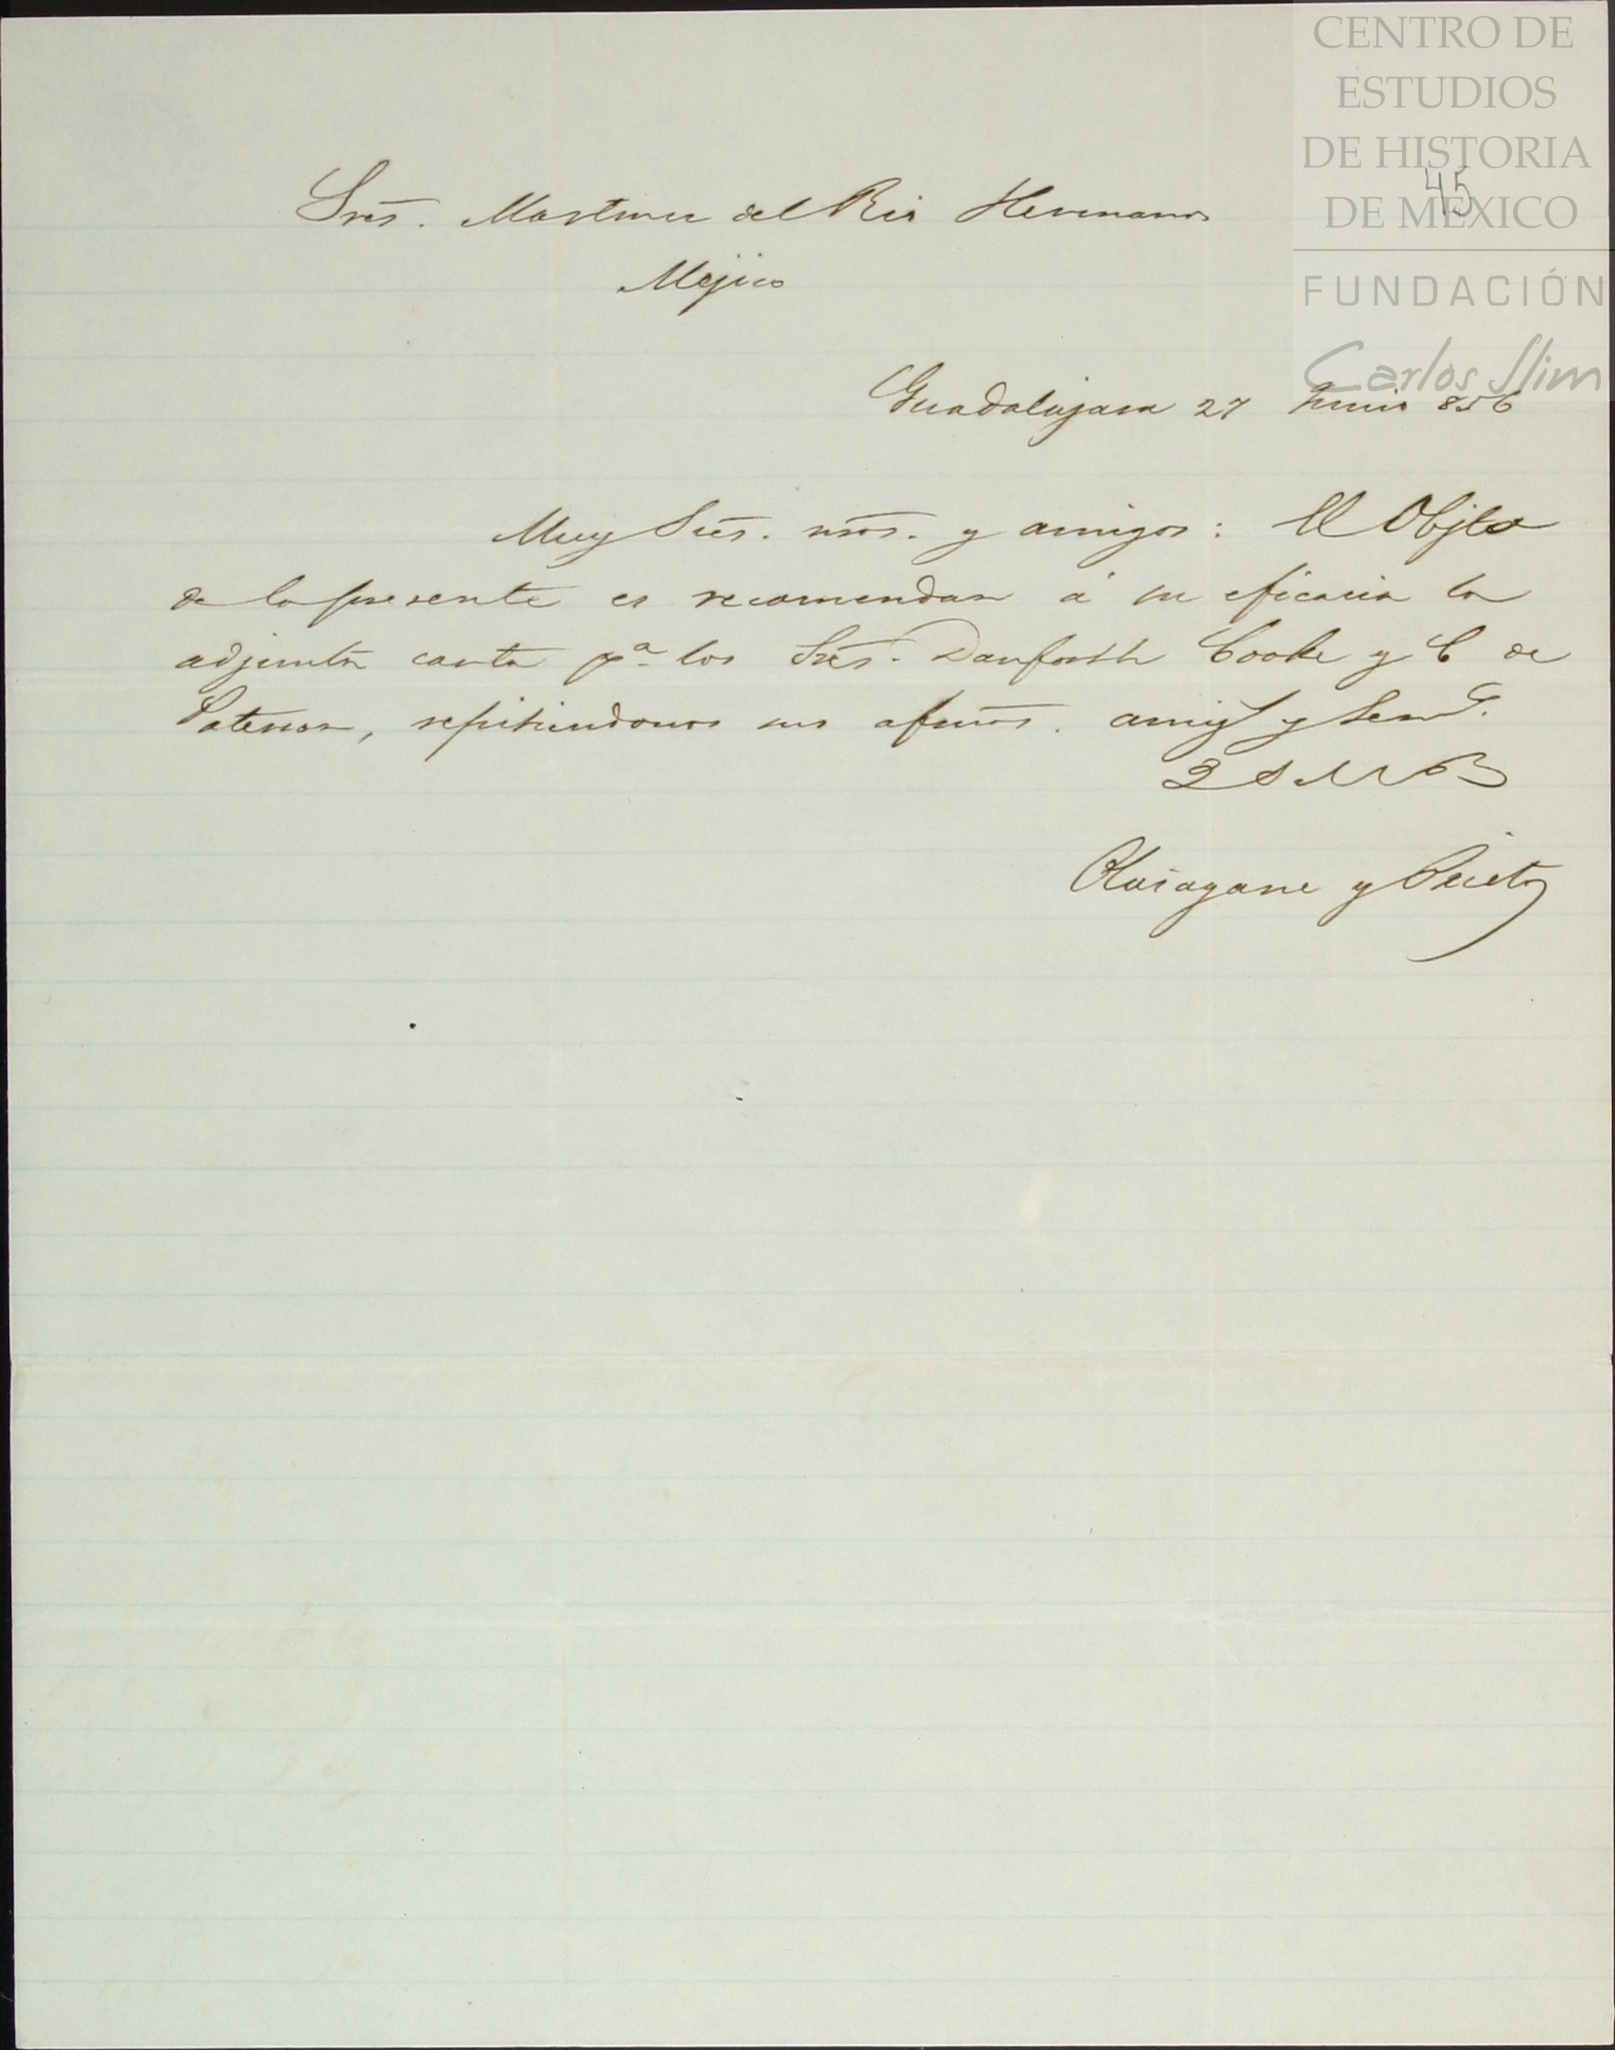 CENTRO DE
ESTUDIOS
DE HISTORIA
DE MÉXICO
45
FUNDACIÓN
Carlos Slim
Sres. Martinez del Rio Hermanos
Mejico
Guadalajara 27 Junio 856
Muy Sres. nros. y amigos: El Objto
de la presente es recomendar á su eficacia la
adjunta carta pa. los Sres. Danforth Cooke y C de
Paterson, repitiendonos sus afmos. amigs y Servs.
Q S M B
Olasagarre y Prieto